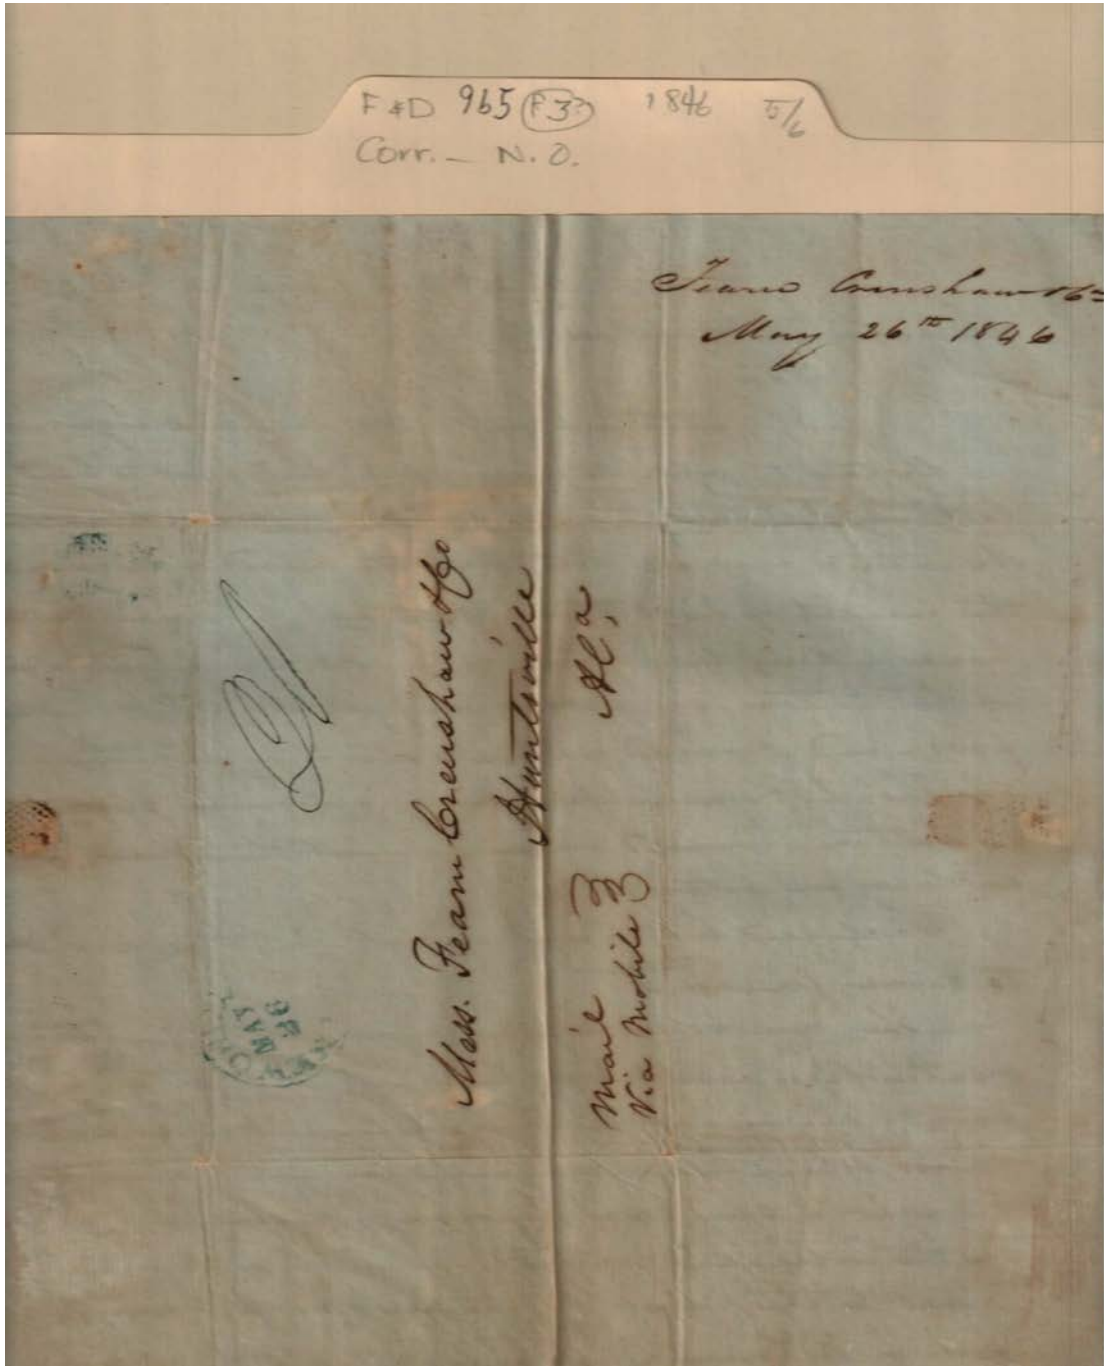 F & D 965 (F 3?) 1846 5/6
Corr. — N. O.
Fearn Crenshaw & Co
May 26th 1846
Mess. Fearn Crenshaw & Co
Huntsville
Ala,
Mail
Via Mobile
MAY
26